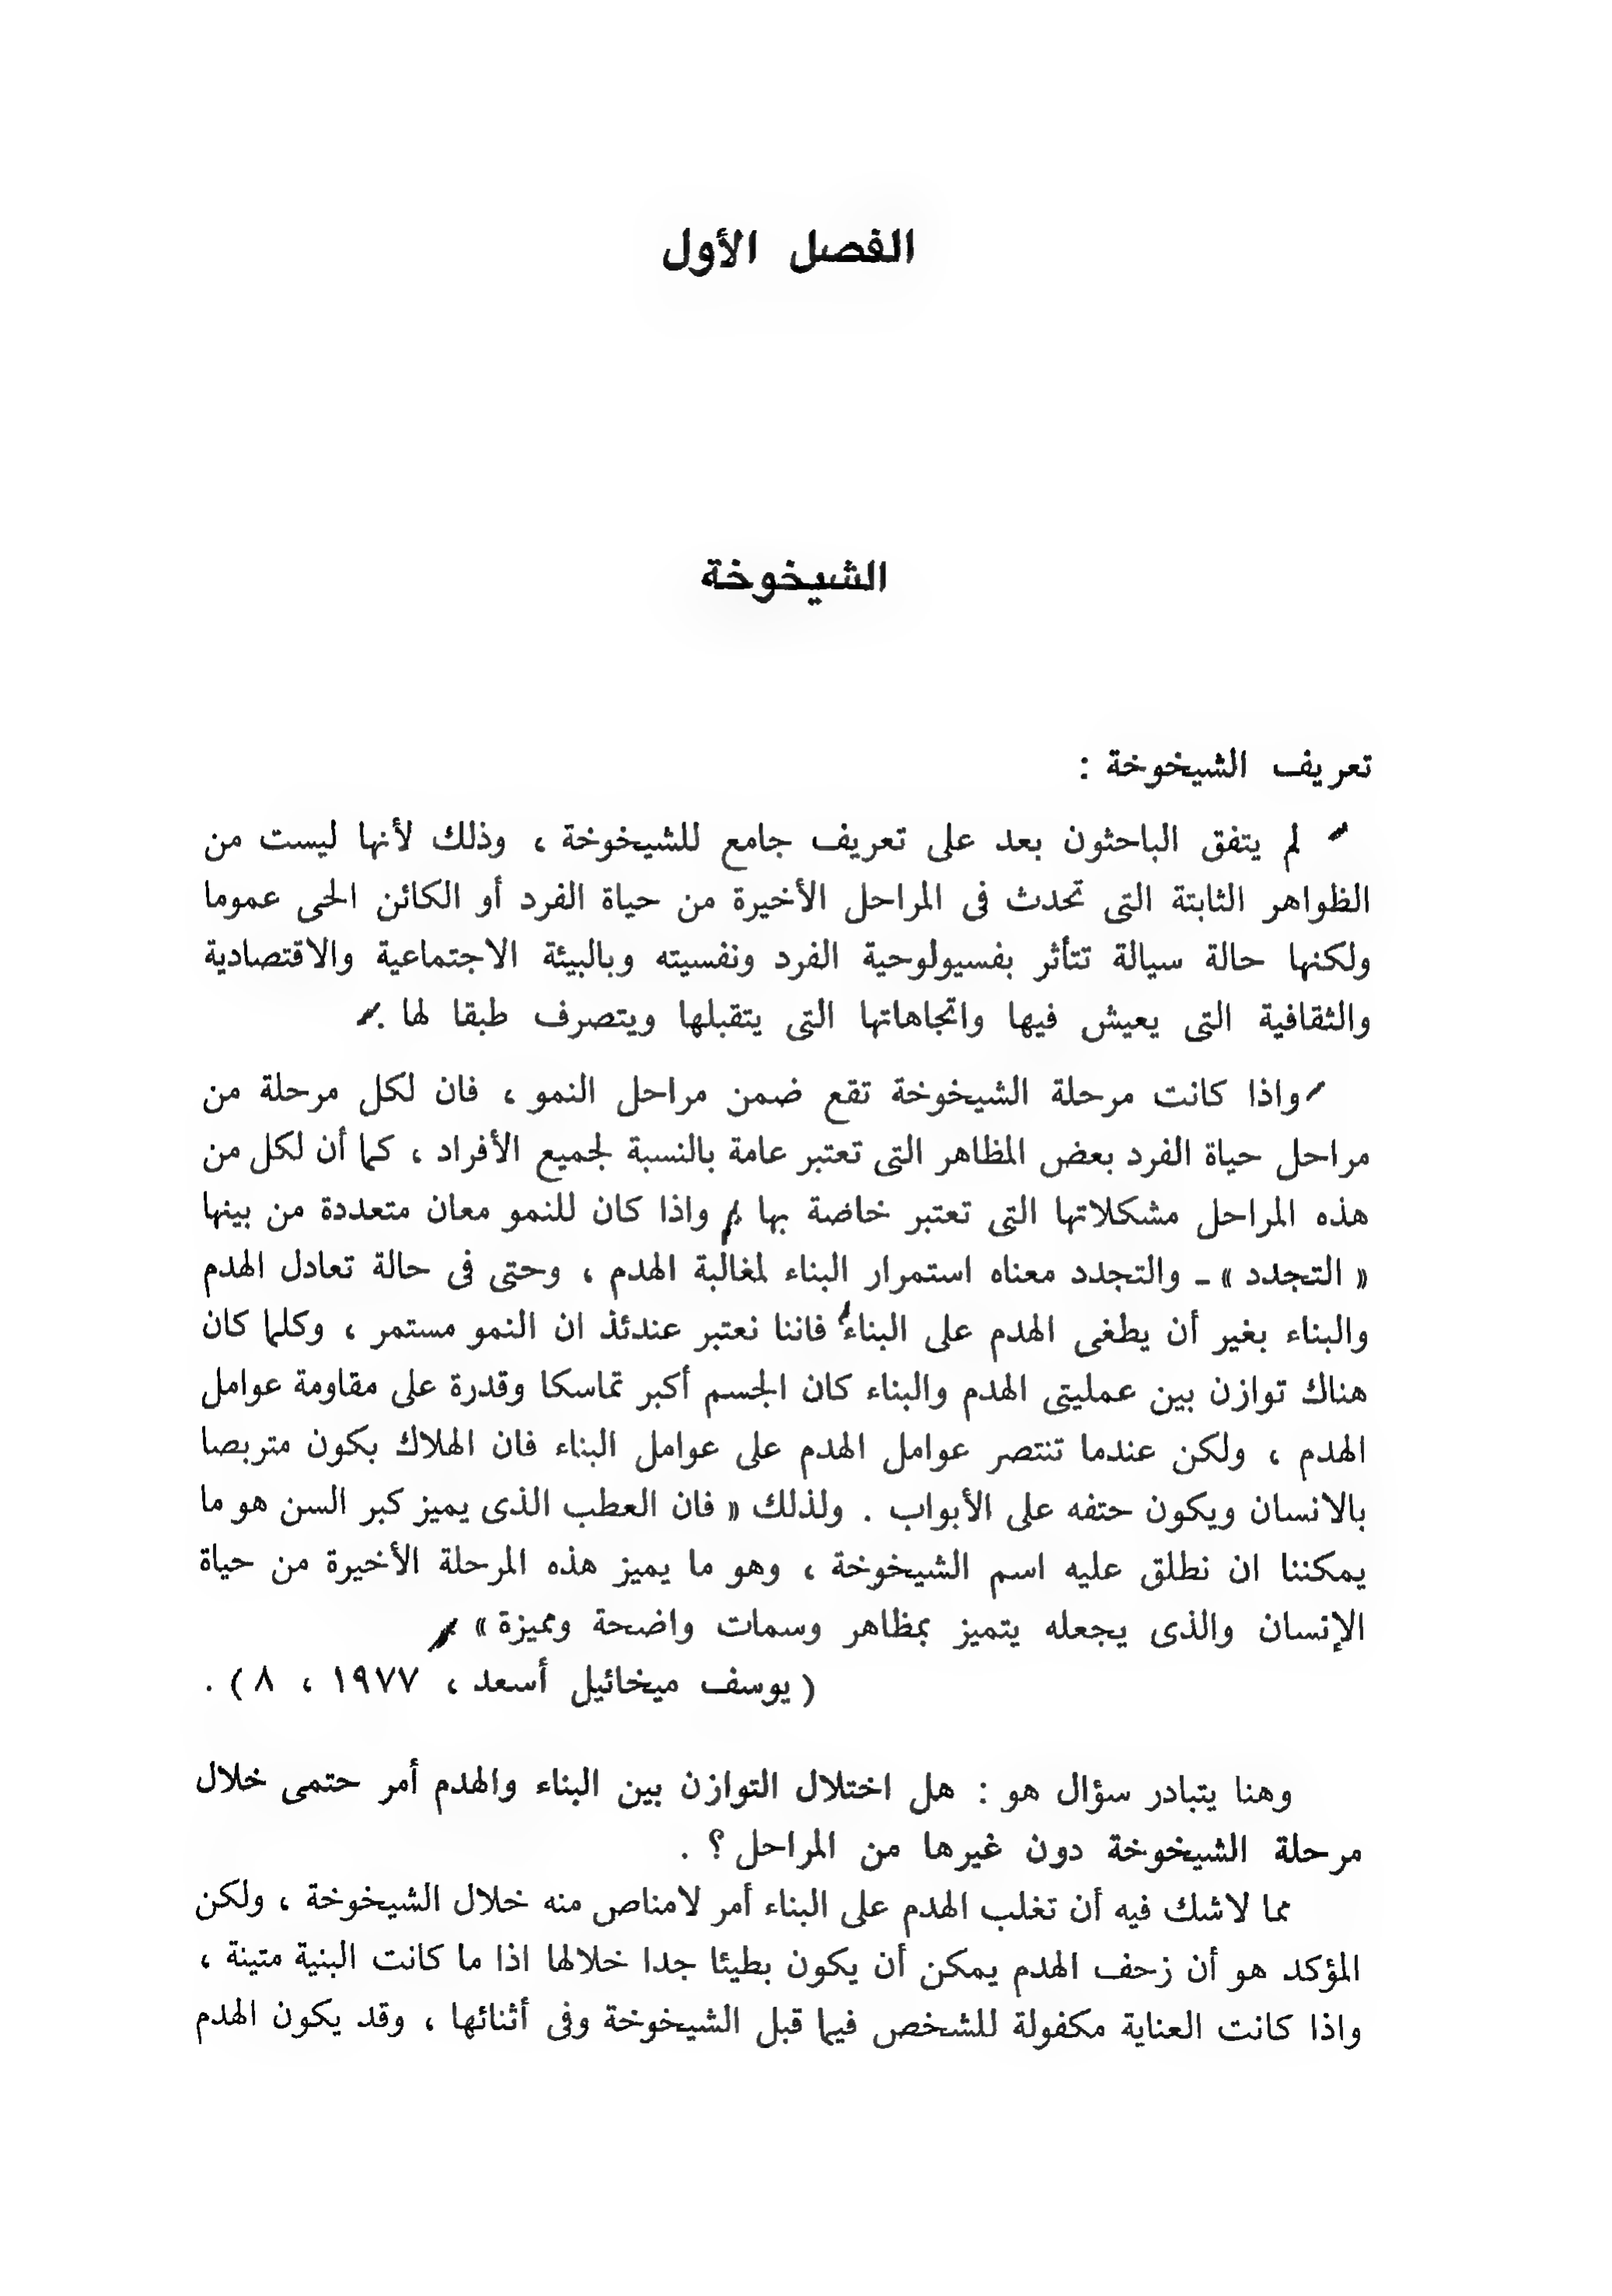 الفصل الأول
الشيخوخة
تعريف الشيخوخة :
لم يتفق الباحثون بعد على تعريف جامع للشيخوخة ، وذلك لأنها ليست من
الظواهر الثابتة التى تحدث فى المراحل الأخيرة من حياة الفرد أو الكائن الحى عموما
ولكنها حالة سيالة تتأثر بفسيولوحية الفرد ونفسيته وبالبيئة الاجتماعية والاقتصادية
والثقافية التى يعيش فيها واتجاهاتها التى يتقبلها ويتصرف طبقا لها .
واذا كانت مرحلة الشيخوخة تقع ضمن مراحل النمو ، فان لكل مرحلة من
مراحل حياة الفرد بعض المظاهر التى تعتبر عامة بالنسبة لجميع الأفراد ، كما أن لكل من
هذه المراحل مشكلاتها التى تعتبر خاصة بها . واذا كان للنمو معان متعددة من بينها
« التجدد » ـ والتجدد معناه استمرار البناء لمغالبة الهدم ، وحتى فى حالة تعادل الهدم
والبناء بغير أن يطغى الهدم على البناء فاننا نعتبر عندئذ ان النمو مستمر ، وكلما كان
هناك توازن بين عمليتى الهدم والبناء كان الجسم أكبر تماسكا وقدرة على مقاومة عوامل
الهدم ، ولكن عندما تنتصر عوامل الهدم على عوامل البناء فان الهلاك بكون متربصا
بالانسان ويكون حتفه على الأبواب . ولذلك « فان العطب الذى يميز كبر السن هو ما
يمكننا ان نطلق عليه اسم الشيخوخة ، وهو ما يميز هذه المرحلة الأخيرة من حياة
الإنسان والذى يجعله يتميز بمظاهر وسمات واضحة ومميزة » .
( يوسف ميخائيل أسعد ، ١٩٧٧ ، ٨ ) .
وهنا يتبادر سؤال هو : هل اختلال التوازن بين البناء والهدم أمر حتمى خلال
مرحلة الشيخوخة دون غيرها من المراحل ؟ .
مما لاشك فيه أن تغلب الهدم على البناء أمر لامناص منه خلال الشيخوخة ، ولكن
المؤكد هو أن زحف الهدم يمكن أن يكون بطيئا جدا خلالها اذا ما كانت البنية متينة ،
واذا كانت العناية مكفولة للشخص فيما قبل الشيخوخة وفى أثنائها ، وقد يكون الهدم